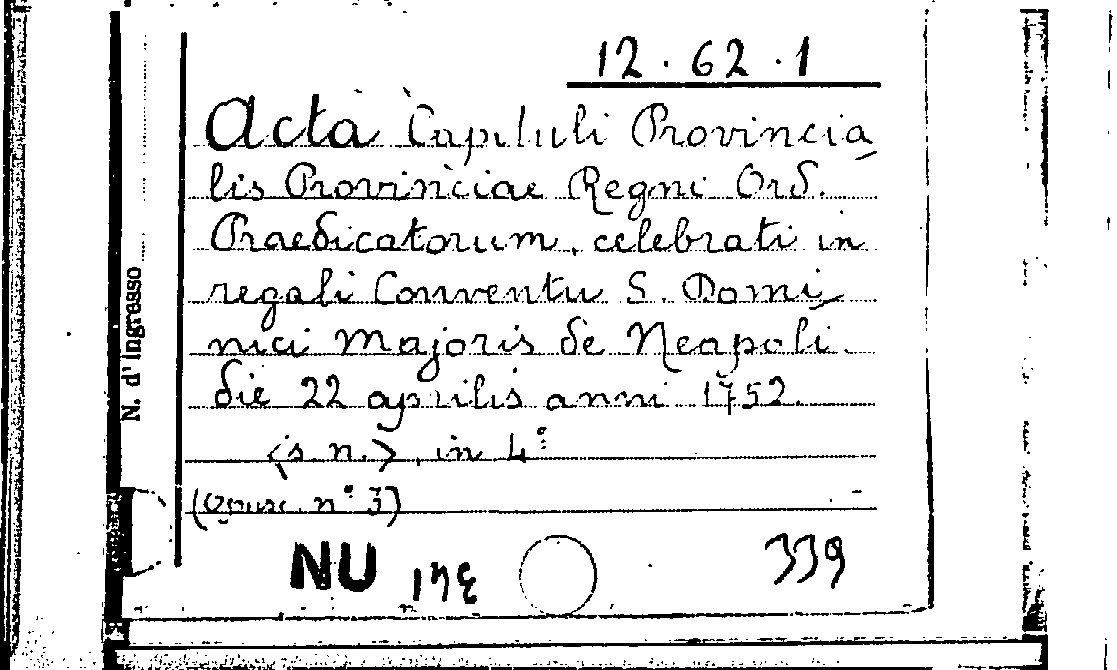 12.62.1
Acta Capituli Provincia-
lis Provinciae Regni Ord.
Praedicatorum, celebrati in
regali Conventu S. Domi-
nici Majoris de Neapoli
die 22 aprilis anni 1752.
<s. n.>, in 4°
(Opusc. n° 3)
N. d'Ingresso
NU
339